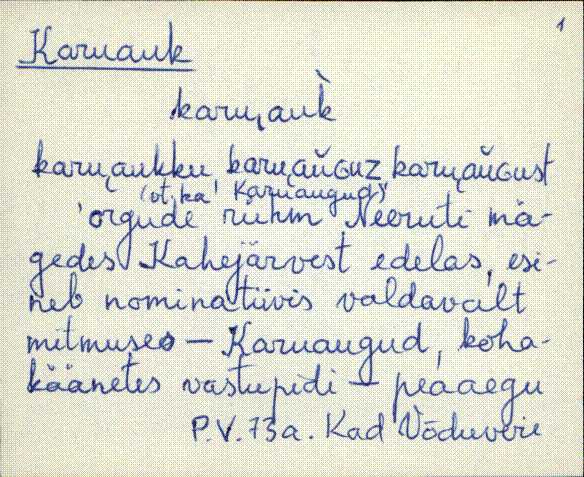 1
Karuauk
karu̯auk̀
karu̯aukku karu̯aŭGuz karu̯aŭGust
(ot. ka ' Karuaugud)'
'orgude rühm Neeruti mä-
gedes Kahejärvest edelas, esi-
neb nominatiivis valdavalt
mitmuses — Karuaugud, koha-
käänetes vastupidi — peaaegu
P.V. 73a. Kad Võduvere